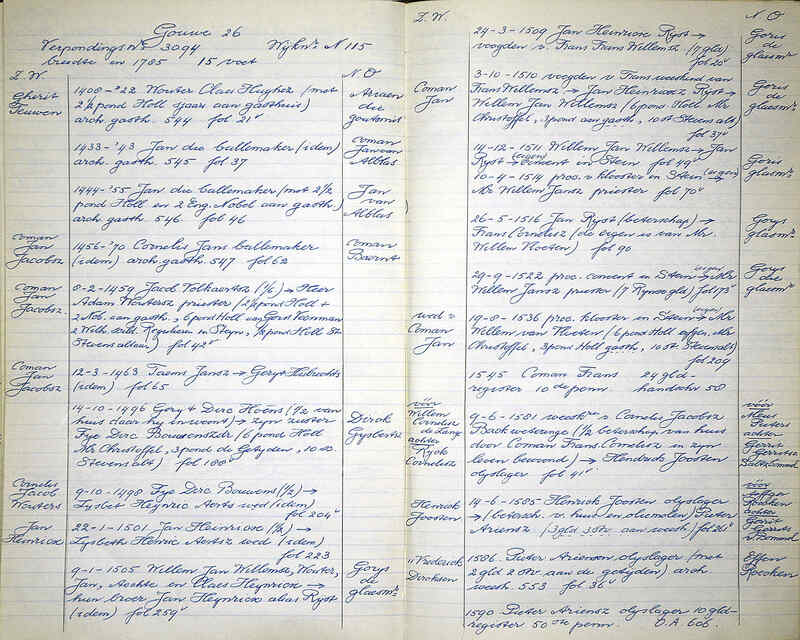 Gouwe 26
Verpondings No 3094 Wijkn. N 115
breedte in 1785 15 voet
Z.W. N.O
Gherit
Teuwen
1408-'22 Wouter Claes Hughez (met
2½ pond Holl sjaars aan gasthuis)
arch. gasth. 544 fol 21v
Ariaen
die
goutsmit
1433-'43 Jan die ballemaker (idem)
arch. gasth. 545 fol 37
Coman
Jan van
Alblas
1444-'55 Jan die ballemaker (met 2½
pond Holl en 2 Eng. Nobel aan gasth)
arch gasth 546 fol 46
Jan
van
Alblas
Coman
Jan
Jacobsz
1456-'70 Cornelis Jans ballemaker
(idem) arch. gasth. 547 fol 62
Coman
Baernt
Coman
Jan
Jacobsz.
8-2-1459 Jacob Volkaertsz (½) → Heer
Adam Woutersz priester (2½ pond Holl +
2 Nob. aan gasth., 6 pond Holl aan Gerit Veenman
2 Wilh. Regulieren in Steyn, ½ pond Holl St
Stevens altaer) fol 42v
Coman
Jan
Jacobsz
12-3-1463 Taems Jansz → Geryt Huibrechts
(idem) fol 65
14-10-1496 Gery & Dirc Hoens (½ van
huis daar hy in woont) → zyn zuster
Fye Dirc Bouwenszdr (6 pond Holl
Mr Christoffel, 3 pond de Getyden, 10 st.
Stevens alt) fol 188v
Dirck
Gysbertsz
Cornelis
Jacob
Wouters
9-10-1498 Fye Dirc Bouwens (½) →
Lysbet Heynric Aerts wed (idem)
fol 204v
Jan
Heinricx
22-1-1501 Jan Heinricxz (½) →
Lysbeth Henric Aertsz wed (idem)
fol 223
9-1-1505 Willem Jan Willemsz, Wouter,
Jan, Aechte en Claes Heynricx →
hun broer Jan Heynricx alias Ryst
(idem) fol 259v
Gorys
de
glaesmr.
Z.W. N.O
24-3-1509 Jan Heinricx Ryst →
voogden v. Frans Frans Willemsz (7 gld)
fol 20v
Goris
de
glaesmr.
Coman
Jan
3-10-1510 voogden v Frans weeskind van
Frans Willemsz → Jan Heinricxz Ryst →
Willem Jan Willemsz (6 pond Holl Mr
Christoffel, 3 pond aan gasth, 10 st Stevens alt)
fol 37v
Goris
de
glaesmr.
14-12-1511 Willem Jan Willemsz → Jan
Ryst → convent in Stein fol 49v
(eigen)
10-4-1514 proc. v klooster in Stein (eigen)
→ Mr Willem Jansz priester fol 70v
Goris
glaesmr.
26-5-1516 Jan Ryst (beterschap) →
Frans Cornelisz (de eigen is van Mr.
Willem Vloeten) fol 90
Gorys
glaesmr.
29-9-1522 proc. convent in Stein (eigen) → Mr
Willem Jansz priester (7 Rynse gld) fol 173v
Gorys
de
glaesmr.
wed v
Coman
Jan
19-8-1536 proc. klooster in Stein (eigen) → Mr
Willem van Vloeten (6 pond Holl effen Mr
Christoffel, 3 pond Holl gasth, 10 st. Stevensalt)
fol 209
1545 Coman Frans 24 gld-
register 10de penn. handschr 58
vóór
Willem
Cornelisz
de Lange
achter
Ryck
Cornelisz
9-6-1581 weesmrn v Cornelis Jacobsz
Brakweteringe (½ beterschap van huis
door Coman Frans Cornelisz in zyn
leven bewoond) → Hendrick Joosten
olyslager fol 41v
vóór
Meus
Pieters
achter
Gerrit
Gerritsz
Henrick
Joosten
14-6-1585 Henrick Joosten olyslager
→ (betersch. v huis en oliemolen) Pieter
Ariensz (3 gld 3 str aan weesh) fol 26v
vóór
achter
Gerrit
Gerrits
Vrederick
Dircksen
1586 Pieter Ariensen olyslager (met
2 gld 2 str aan de getyden) arch
weesh. 553 fol 36v
Effen
Roecken
1590 Pieter Ariensz olyslager 10 gld-
register 50ste penn. O.A. 606.